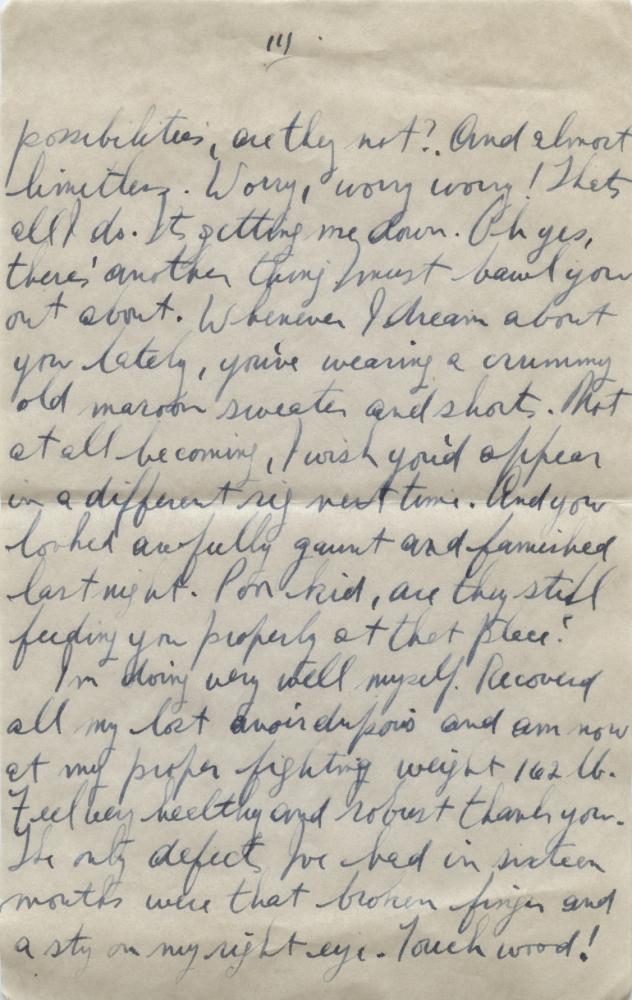 111
possibilities, are they not? And almost
limitless. Worry, worry worry! Thats
all I do. Its getting me down. Oh yes,
there's another thing I must bawl you
out about. Whenever I dream about
you lately, you've wearing a crummy
old maroon sweater and shorts. Not
at all becoming, I wish you'd appear
in a different rig next time. And you
looked awfully gaunt and famished
last night. Poor kid, are they still
feeding you properly at that place?
I'm doing very well myself. Recovered
all my lost avoirdupois and am now
at my proper fighting weight 162 lb.
Feel very healthy and robust thank you.
The only defects I've had in sixteen
months were that broken finger and
a sty on my right eye. Touch wood!